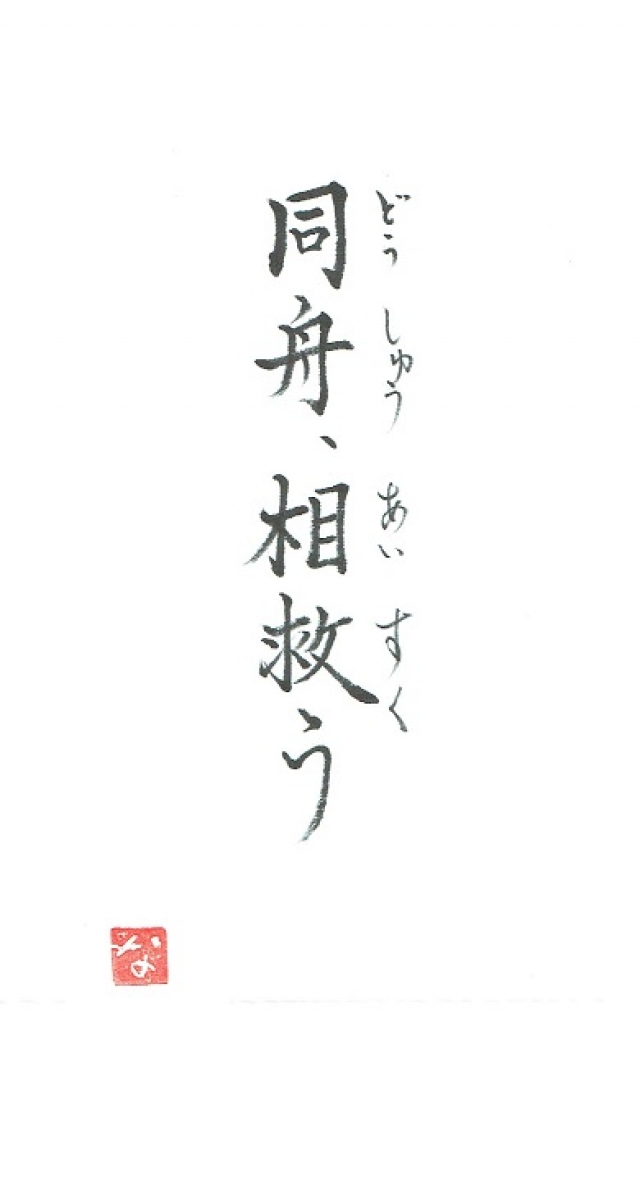 どうしゅう あい すく
同舟、相救う
な